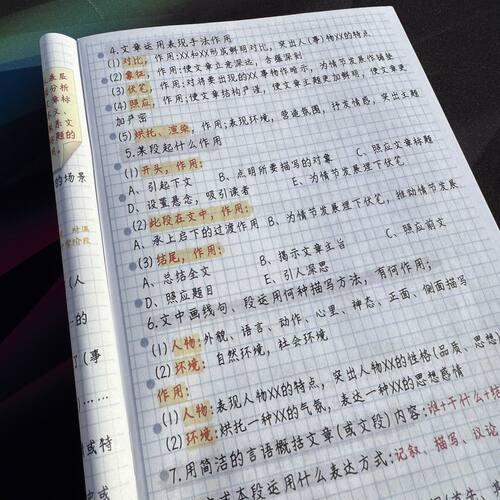 4.文章运用表现手法作用
(1)对比,作用:XX和XX形成鲜明对比,突出人(事)物XX的特点
(2)象征,作用:使文章立意深远,含蕴深刻
(3)伏笔,作用:对将要出现的XX事物作暗示,为情节发展作铺垫
(4)照应,作用:使文章结构严谨,使文章主题更加鲜明,使文章更
加严密
(5)烘托、渲染,作用:表现环境,营造氛围,抒发情感,突出主题
5.某段起什么作用
(1)开头,作用:
A、引起下文 B、点明所要描写的对象 C、照应文章标题
D、设置悬念,吸引读者 E、为情节发展埋下伏笔
(2)此段在文中,作用:
A、承上启下的过渡作用 B、为情节发展埋下伏笔,推动情节发展
C、照应前文
(3)结尾,作用:
A、总结全文 B、揭示文章主旨
D、照应题目 E、引人深思
6.文中画线句、段运用何种描写方法,有何作用;
(1)人物:外貌、语言、动作、心里、神态、正面、侧面描写
(2)环境:自然环境,社会环境
作用:
(1)人物:表现人物XX的特点,突出人物XX的性格(品质、思想)
(2)环境:烘托一种XX的气氛,表达一种XX的思想感情
7.用简洁的言语概括文章(或文段)内容:谁+干什么+结
或本段运用什么表达方式:记叙、描写、议论
的场景
(人
的
了(事
或特